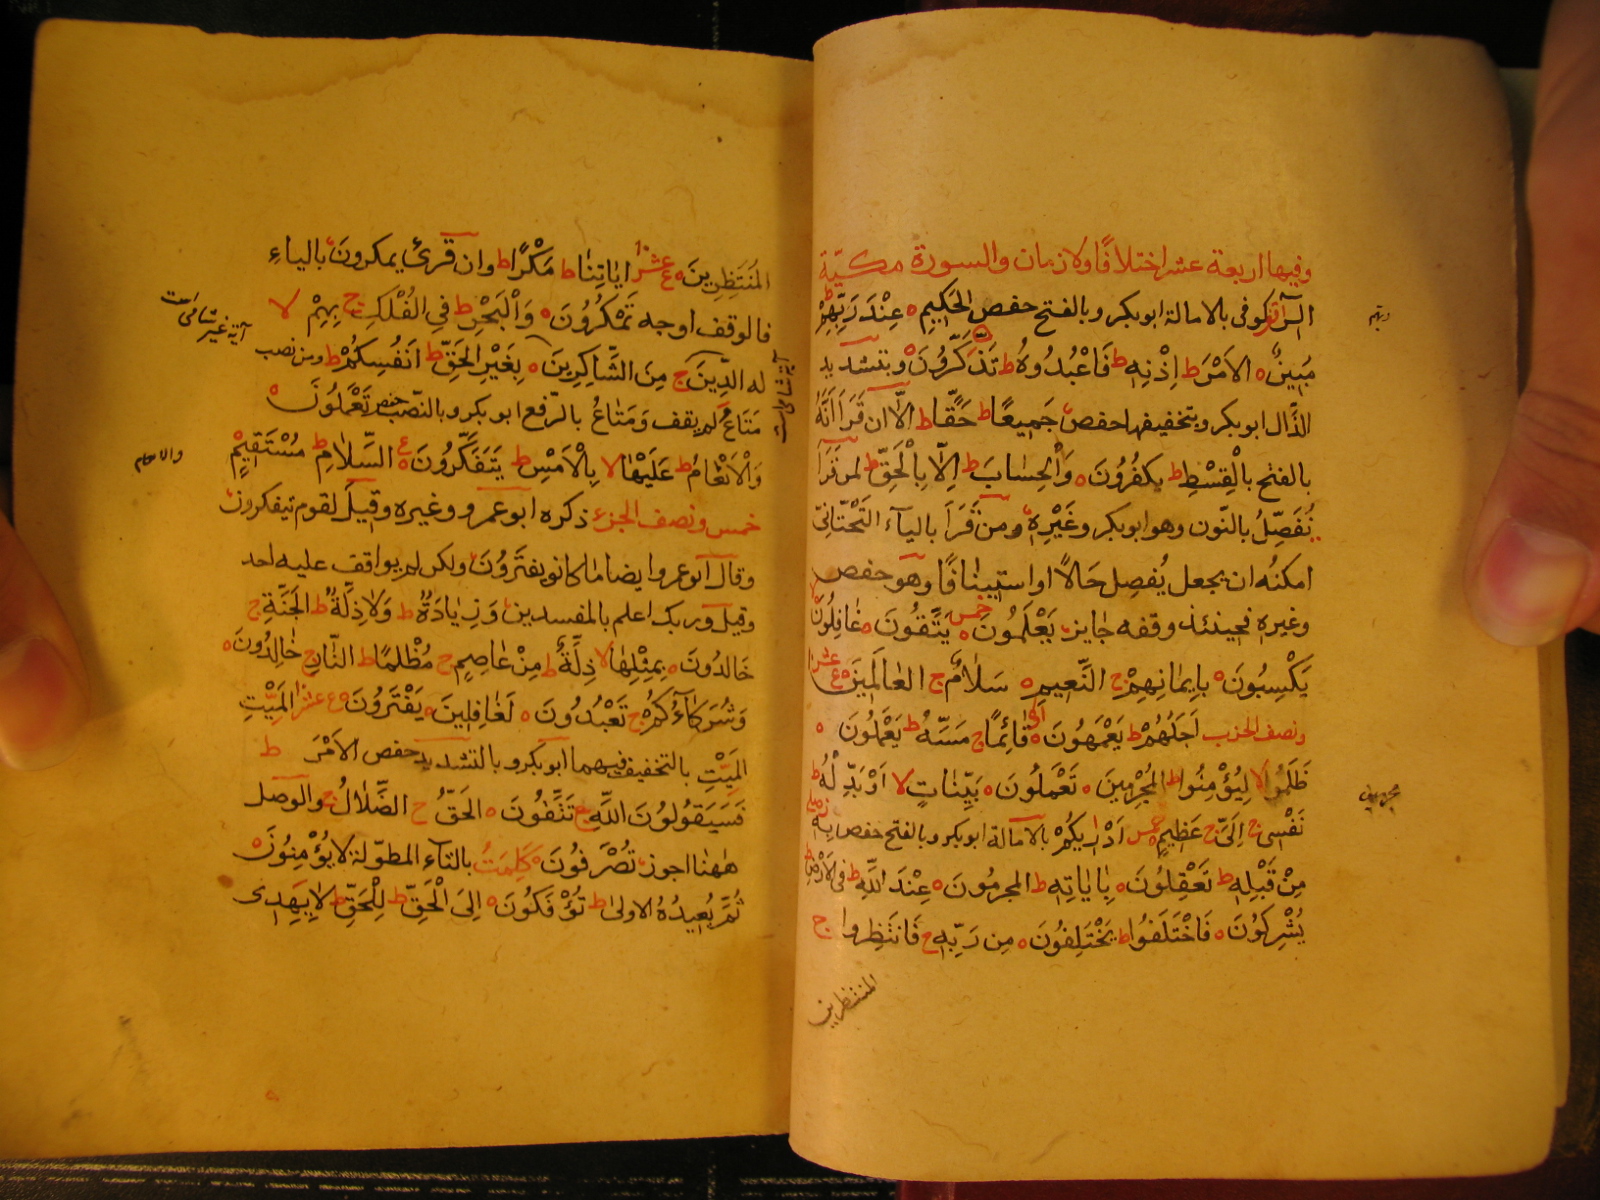 وفيها اربعة عشر اختلافًا ولازمان والسورة مكيّة
الٓرٰ كوفى بالامالة ابوبكر وبالفتح حفص الحَكِيمِ ه عِنْدَ رَبِّهِمْ ط
مُبِينٌ ه الاَمْرَ ط اِذْنِهِ ط فَاعْبُدُوهُ ط تَذَّكَّرُونَ ه وبتشديد
الذّال ابوبكر وبتخفيفها حفص جَمِيعًا ط حَقًّا ط اِلّا ان قَرَأَ اَنَّهُ
بالفتح بالْقِسْطِ ط يكفُرُونَ ه وَالْحِسَابَ ط اِلَّا بِالْحَقِّ ط لمن قَرَأَ
نُفَصِّلُ بالنّون وهو ابوبكر وغَيْرِهِ ومن قَرَأَ باليآء التَحْتَانِىّ
امكنُه ان يجعل يُفصِل حَالاً او استِينافًا وهو حفص
وغيره فحينئذ وقفه جايز يَعْلَمُونَ ه خمس يَتَّقُونَ ه غافِلُونَ لا
يَكْسِبُونَ ه بِايمَانِهِمْ ج النَّعِيمِ ه سَلَامٌ ج العَالَمِينَ ه ع عشر
ونصف الحزب اَجَلَهُمْ ط يَعْمَهُونَ ه قَائِمًا ج مَسَّهُ ط يَعْمَلُونَ ه
ظَلَمُوا لا لِيُؤْمِنُوا ط المُجْرِمِينَ ه تَعْمَلُونَ ه بَيِّنَاتٍ لا اَوْ بَدِّلْهُ ط
نَفْسِى ج اِلَىَّ ج عَظِيمٍ ه خمس اَدْرٰيكُمْ بالامالة ابوبكر وبالفتح حفص بِهِ
مِنْ قَبْلِهِ ط تَعْقِلُونَ ه بِاٰيَاتِهِ ط المجرمُونَ ه عِنْدَ اللّٰهِ ط فى الاَرْضِ ط
يُشْرِكُونَ ه فَاخْتَلَفُوا ط يَخْتَلِفُونَ ه مِن رَبِّهِ ج فَانتَظِروا ج
المنتظرين
المُنتَظِرِينَ ه ع عشر اٰيَاتِنَا ط مَكْرًا ط وان قرئ يمكرون بالياء
فالوقف اوجه تَمْكُرُونَ ه وَالْبَحْرِ ط فى الفُلْكِ ج بِهِمْ لا
آية غير شامى است
له الدِّينَ ج مِنَ الشَّاكِرِينَ ه بِغَيْرِ الحَقِّ ط اَنفُسِكُمْ ط ومن نصب
مَتَاعَ لم يقف وَمَتَاعُ بالرّفع ابوبكر وبالنّصب حفص تَعْمَلُونَ ه
وَالْاَنْعَامُ ط عَلَيْهَا لا بِالْاَمْسِ ط يَتَفَكَّرُونَ ه ع السَّلَامِ ط مُسْتَقِيمٍ
خمس ونصف الجزء ذكره ابوعمرو وغيره وقيل لقوم يتفكرون
وقال ابوعمرو ايضا ما كانو يفترُونَ ولكن لم يواقف عليه احد
وقيل وربك اعلم بالمفسدين وَزِيَادَةٌ ط وَلَاذِلَّةٌ ط الجَنَّةِ ج
خَالدُونَ ه بِمِثْلِهَا لا ذِلَّةٌ ط مِنْ عَاصِمٍ ج مُظْلِمًا ط النَّارِ ج خَالِدُونَ ه
وَشُرَكَاؤُكُمْ ج تَعْبُدُونَ ه لَغَافِلِينَ ه يَفْتَرُونَ ه ع عشر المَيِّتِ
المَيْتِ بالتخفيف فيهما ابوبكر وبالتشديد حفص الاَمْرَ ط
فَسَيَقولُونَ اللّٰهُ ج تَتَّقُونَ ه الحَقُّ ج الضَّلَالُ ج والوصل
هٰهنا اجوز تُصْرَفُونَ ه كَلِمَتُ بالتآء المطوّلة لَايُؤْمِنُونَ ه
ثُمَّ يُعِيدُهُ الاولى ط تُؤْفَكُونَ ه اِلَى الْحَقِّ ط لِلْحَقِّ ط لَا يَهِدِى